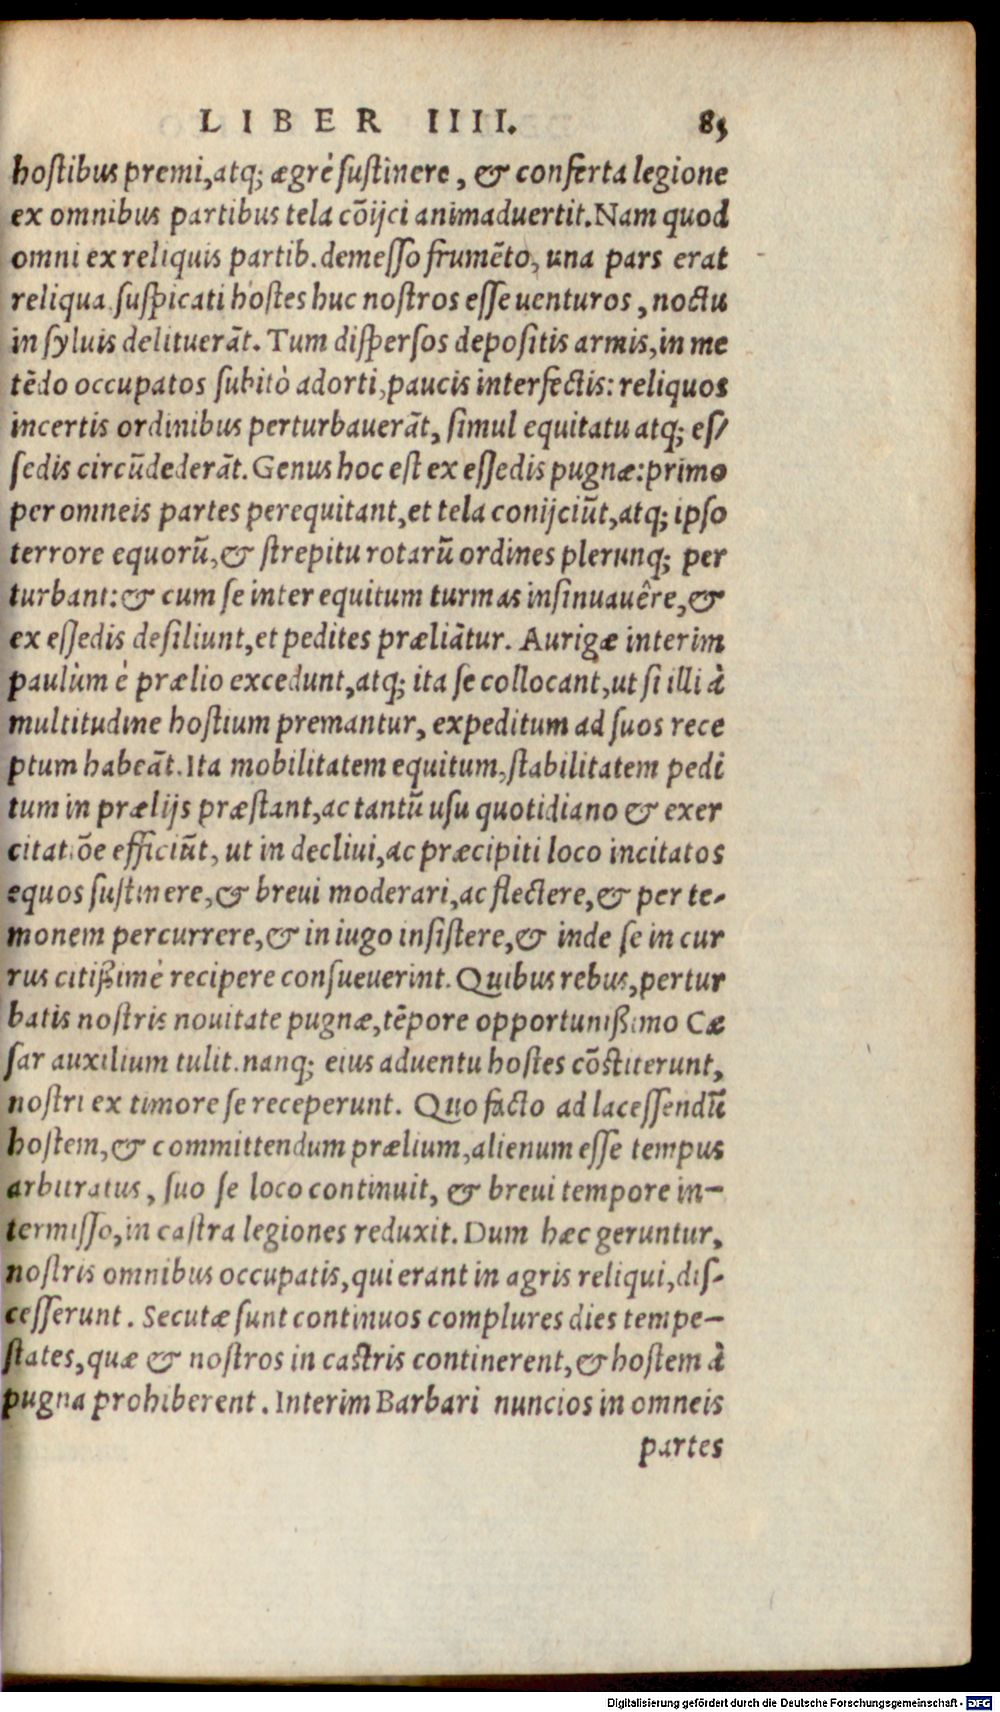 LIBER IIII. 85
hostibus premi, atq; ægrè sustinere, & conferta legione
ex omnibus partibus tela cōijci animaduertit. Nam quod
omni ex reliquis partib. demesso frumēto, una pars erat
reliqua suspicati hostes huc nostros esse uenturos, noctu
in syluis delituerāt. Tum dispersos depositis armis, in me
tēdo occupatos subitò adorti, paucis interfectis: reliquos
incertis ordinibus perturbauerāt, simul equitatu atq; es/
sedis circūdederāt. Genus hoc est ex essedis pugnæ: primo
per omneis partes perequitant, et tela conijciūt, atq; ipso
terrore equorū, & strepitu rotarū ordines plerunq; per
turbant: & cum se inter equitum turmas insinuauêre, &
ex essedis desiliunt, et pedites præliātur. Aurigæ interim
paulùm è prælio excedunt, atq; ita se collocant, ut si illi à
multitudine hostium premantur, expeditum ad suos rece
ptum habeāt. Ita mobilitatem equitum, stabilitatem pedi
tum in prælijs præstant, ac tantū usu quotidiano & exer
citatiōe efficiūt, ut in decliui, ac præcipiti loco incitatos
equos sustinere, & breui moderari, ac flectere, & per te-
monem percurrere, & in iugo insistere, & inde se in cur
rus citißimè recipere consueuerint. Quibus rebus, pertur
batis nostris nouitate pugnæ, tēpore opportunißimo Cæ
sar auxilium tulit. nanq; eius aduentu hostes cōstiterunt,
nostri ex timore se receperunt. Quo facto ad lacessendū
hostem, & committendum prælium, alienum esse tempus
arbitratus, suo se loco continuit, & breui tempore in-
termisso, in castra legiones reduxit. Dum hæc geruntur,
nostris omnibus occupatis, qui erant in agris reliqui, dis-
cesserunt. Secutæ sunt continuos complures dies tempe-
states, quæ & nostros in castris continerent, & hostem à
pugna prohiberent. Interim Barbari nuncios in omneis
partes
Digitalisierung gefördert durch die Deutsche Forschungsgemeinschaft - DFG